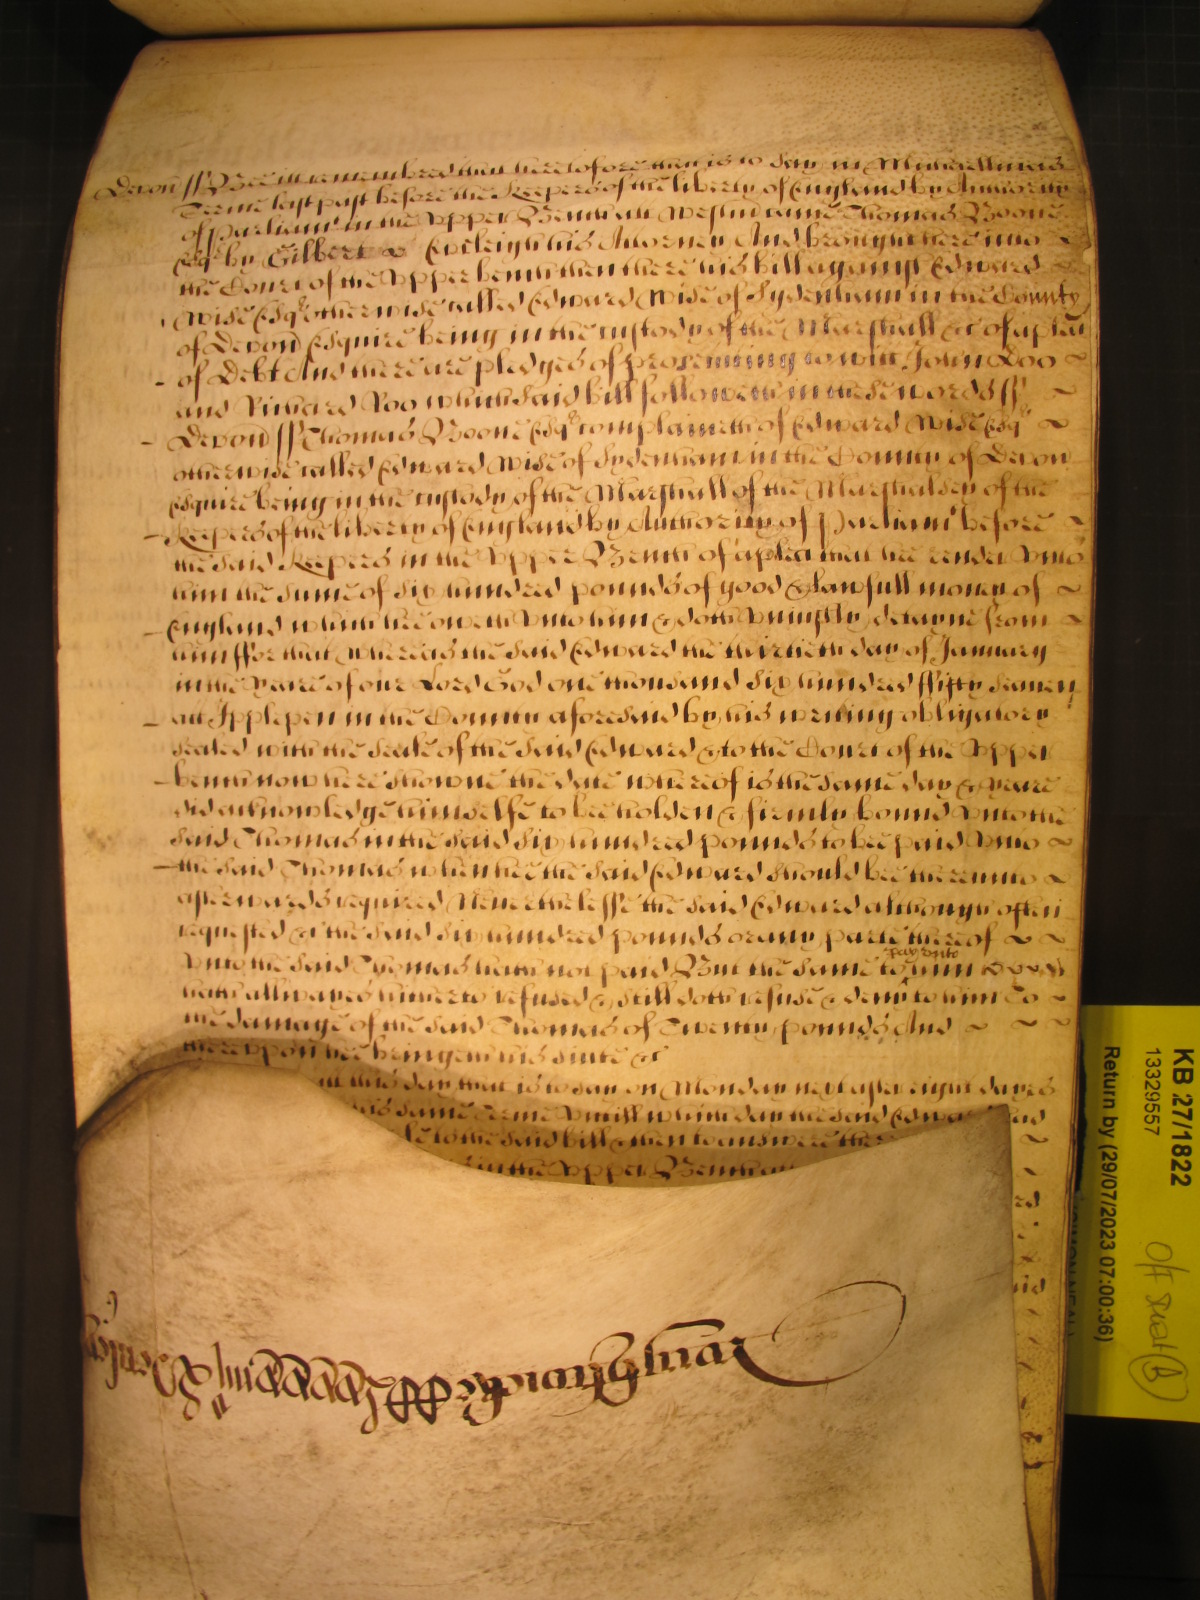 Devon ss Bee it remembred that heretofore that is to say in Michaellmas
Terme last past before the Keepers of the liberty of England by Authority
of Parliamt in the Upper Bench att Westm came Thomas Boone
Esqr by Gilbert Eveleigh his Attorney And brought here into
the Court of the Upper bench then there his bill against Edward
Wise Esqr otherwise called Edward Wise of Sydenham in the County
of Devon Esquire being in the custody of the Marshall &c of a plea
of Debt And there are pledges of prosecuting to witt John Doo
and Richard Roo which said bill followeth in these words ss
Devon ss Thomas Boone Esqr complaineth of Edward Wise Esqr
otherwise called Edward Wise of Sydenham in the County of Devon
Esquire being in the custody of the Marshall of the Marshalsey of the
Keepers of the liberty of England by Authority of Parliamt before
the said Keepers in the Upper Bench of a plea that hee render unto
him the summe of six hundred pounds of good & lawfull money of
England which hee oweth unto him & doth uniustly detayne from
him ffor that whereas the said Edward the thirtieth day of January
in the yeare of our Lord God one thousand six hundred ffifty seaven
att Ipplepen in the County aforesaid by his writing obligatory
sealed with the seale of the said Edward & to the Court of the Upper
bench now here showne the date whereof is the same day & yeare
did acknowledge himselfe to bee holden & firmly bound unto the
said Thomas in the said six hundred pounds to bee paid unto
the said Thomas when hee the said Edward should bee thereunto
afterwards required Neverthelesse the said Edward although often
requested &c the said six hundred pounds or any parte thereof
unto the said Thomas hath not paid But the same to pay unto him
hath allwayes hitherto refused & still doth refuse & deny to him To
the damage of the said Thomas of Twenty pounds And
thereupon hee bringeth his suite &c
att this day that is to say on Monday next after eight dayes
his same Terme Untill which day the said Edward had
le to the said bill & then to answere the
in the Upper Bench att
KB 27/1822
13329557
Return by (29/07/2023 07:00:36)